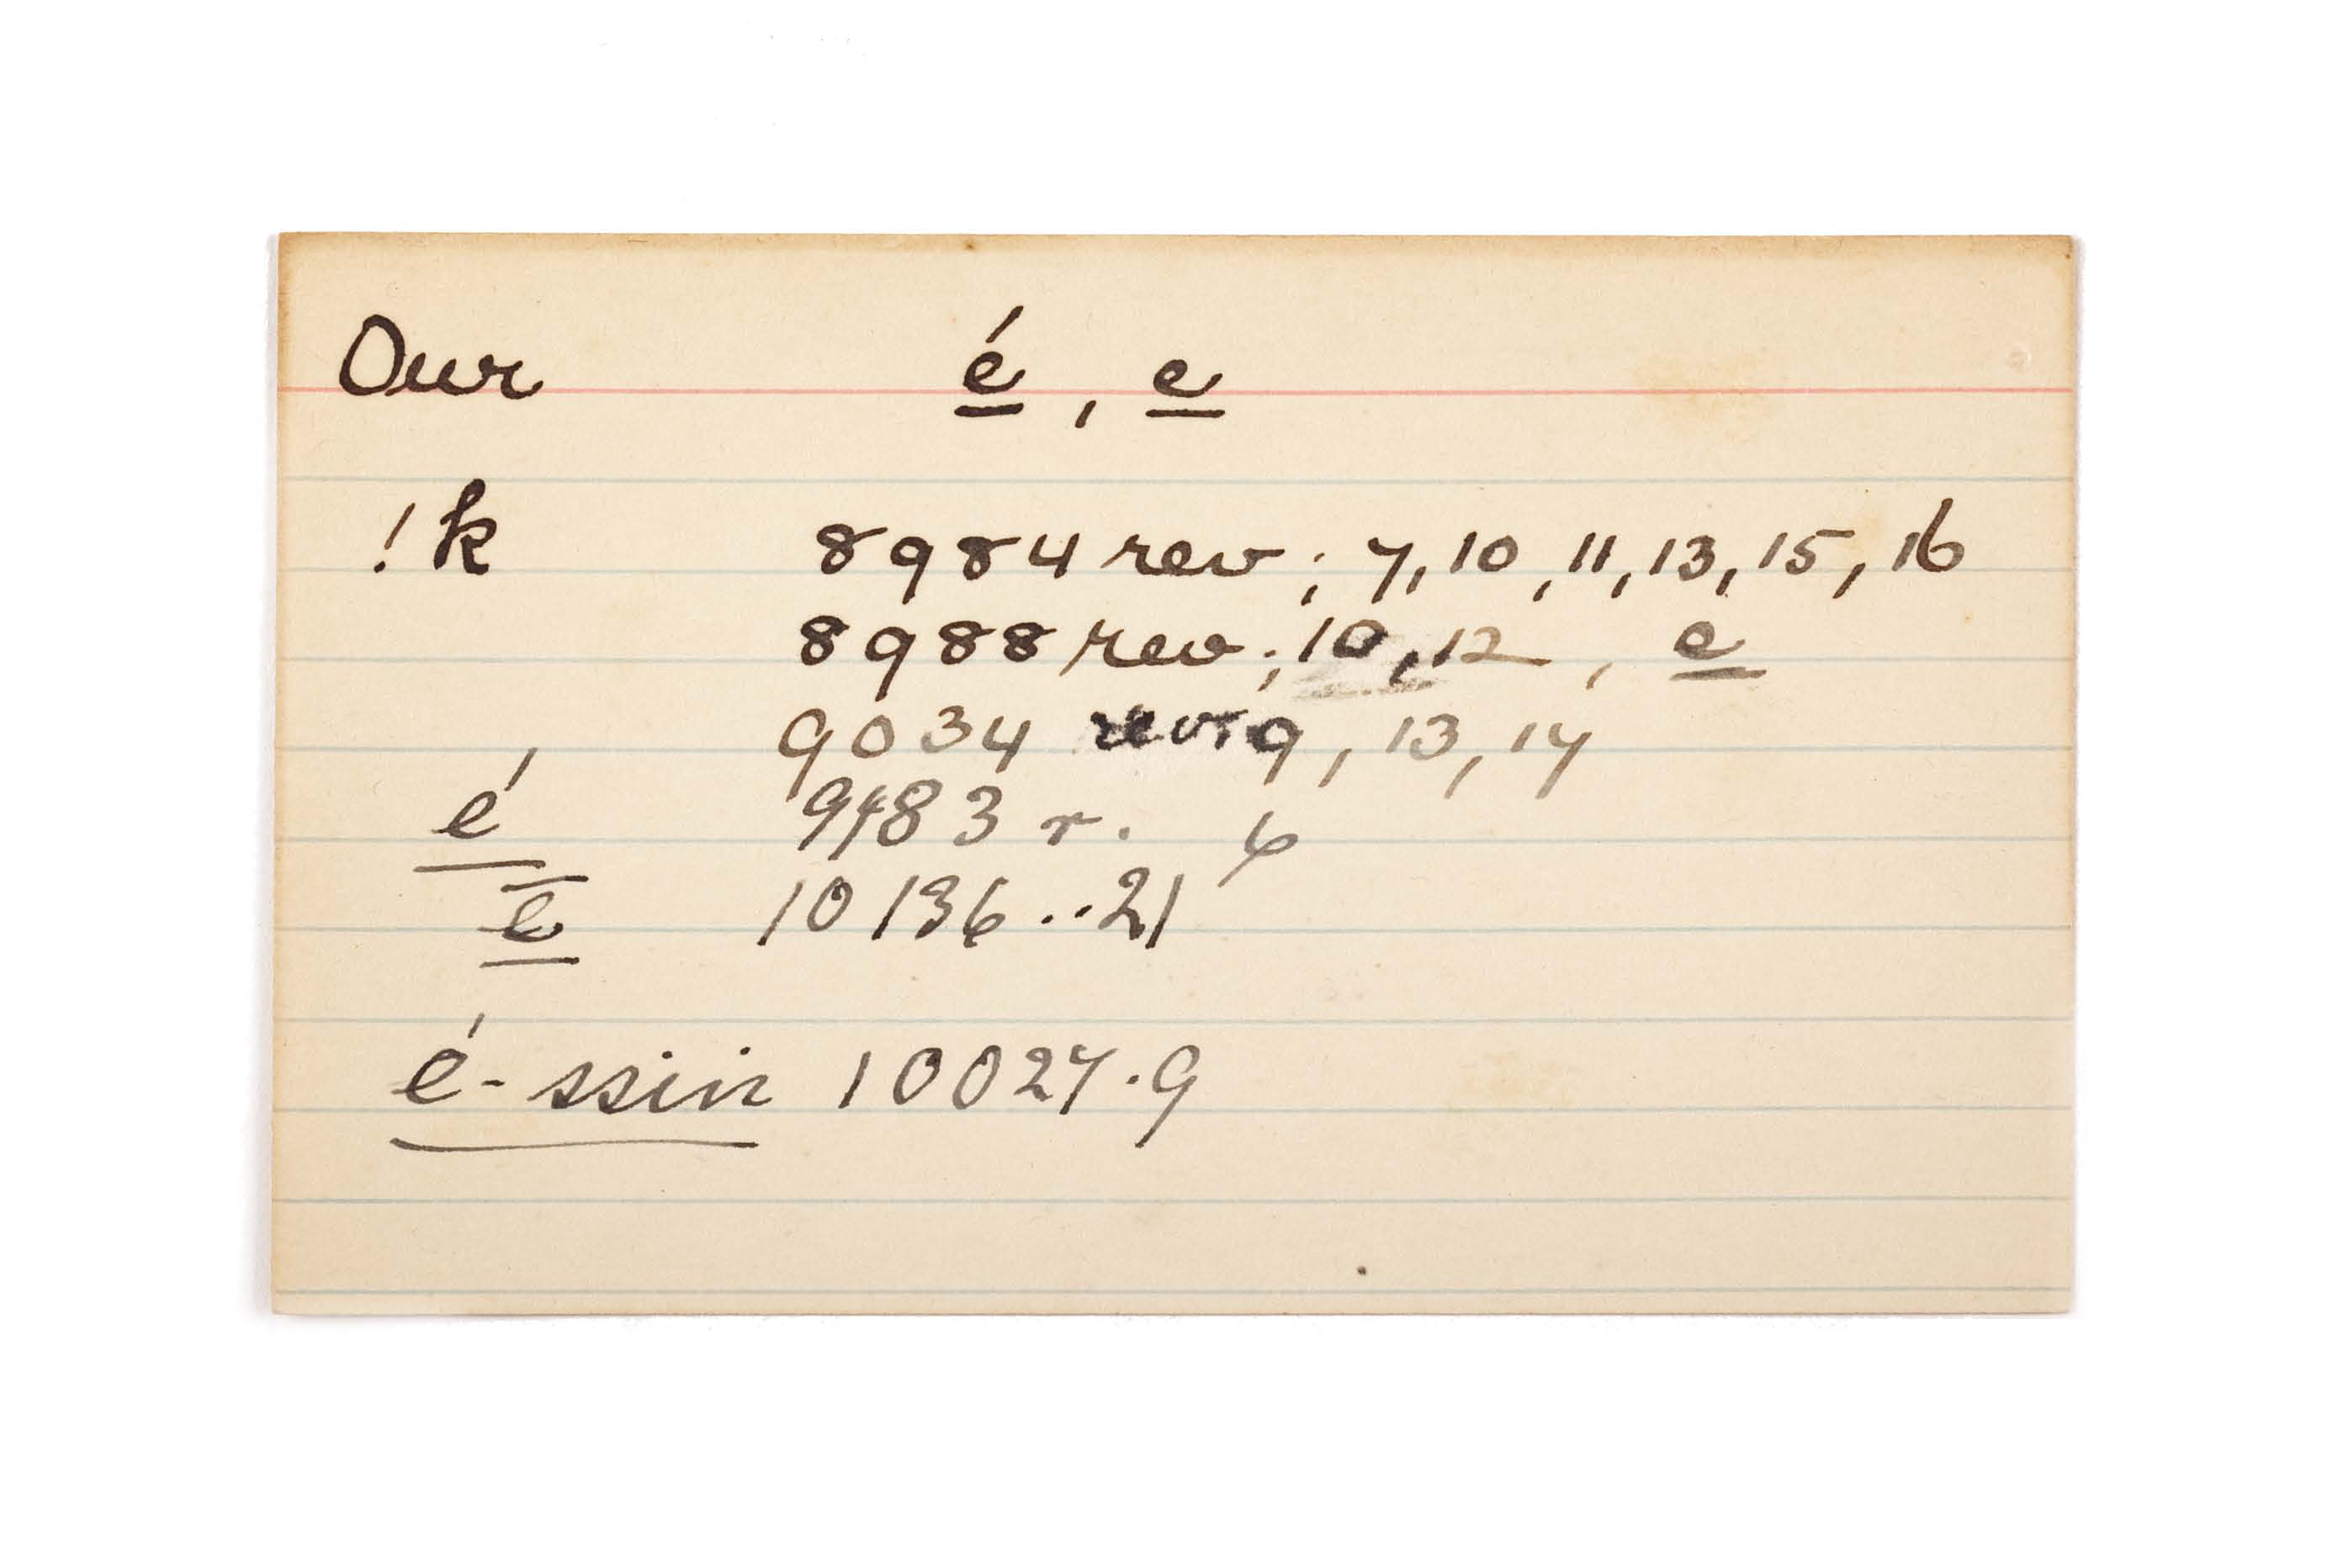 Our é, e
!k 8984 rev; 7, 10, 11, 13, 15, 16
8988 rev; 10, 12, e
9034 rev. 9, 13, 14
é 9483 r. 6
ē 10136..21
é-ssin 10027.9